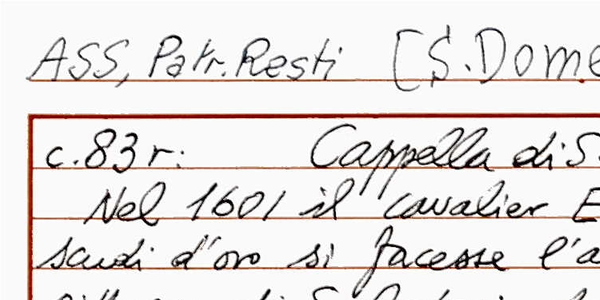 ASS, Patr. Resti [S. Dome
c. 83 r: Cappella di S.
Nel 1601 il cavalier E
scudi d'oro si facesse l'a
di S.